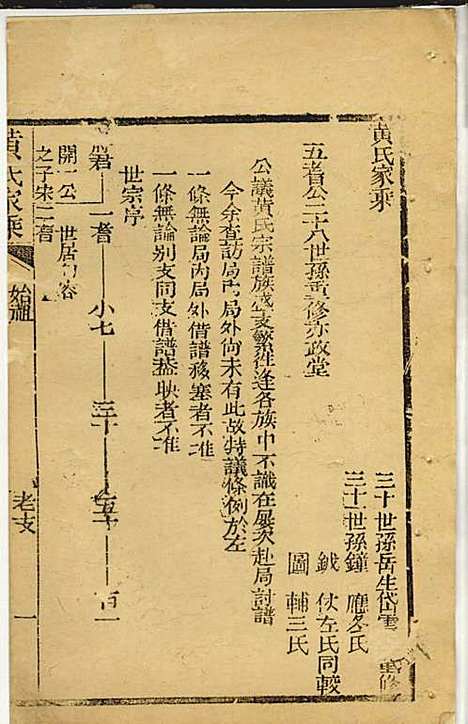 黄氏家乘
三十世孫岳生岱雲 重修
三十一世孫鐘 應冬氏
五耆公二十八世孫 修亦政堂
鉞 伏左氏同較
圖 輔三氏
公議黄氏宗譜族 支繁往逢各族中不識在屢次赴局討譜
今余查訪局內局外尚未有此故特議條例於左
一條無論局內局外借譜移塞者不准
一條無論別支同支借譜 映者不准
世宗序
君 一耆 小七 三十 五十 百一
開一公 世居句容
之子宋 一耆
黄氏家乘 始祖 老支 一